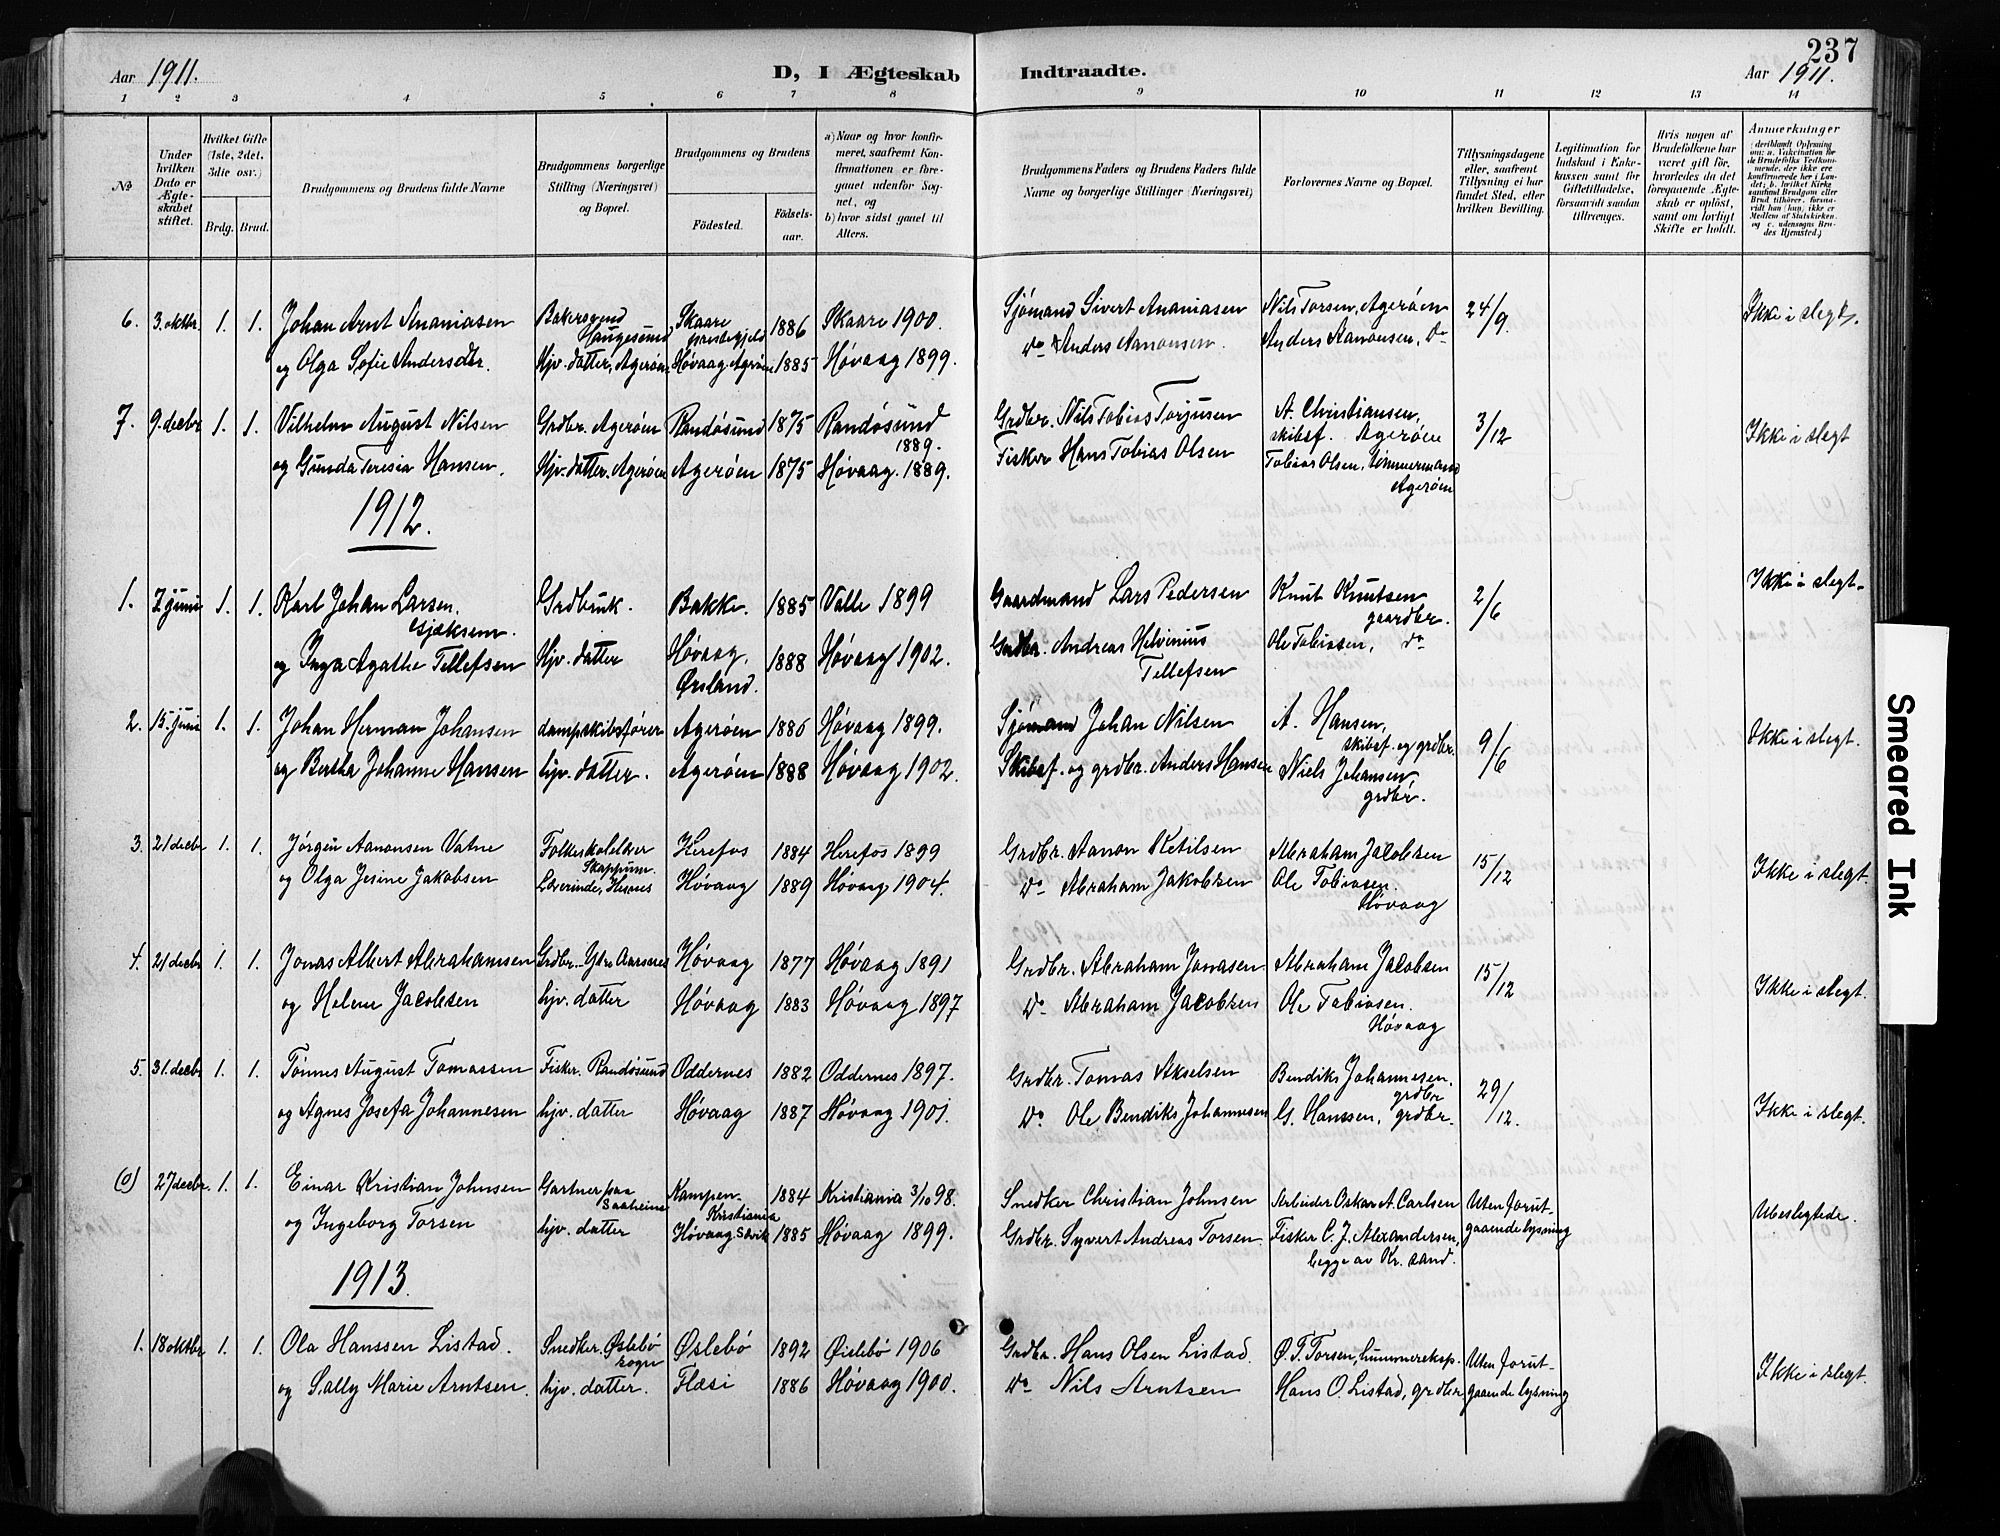 237
Aar 1911. D, I Ægteskab Indtraadte. Aar 1911.
1 2 3 4 5 6 7 8 9 10 11 12 13 14
No
Under hvilken Dato er Ægteskabet stiftet.
Hvilket Gifte (1ste, 2det, 3die osv.)
Brdg. Brud.
Brudgommens og Brudens fulde Navne
Brudgommens borgerlige Stilling (Næringsvei) og Bopæl.
Brudgommens og Brudens
Fødested. Fødselsaar.
a) Naar og hvor konfirmeret, saafremt Konfirmationen er foregaaet udenfor Sognet, og
b) hvor sidst gaaet til Alters.
Brudgommens Faders og Brudens Faders fulde Navne og borgerlige Stillinger (Næringsvei)
Forlovernes Navne og Bopæl.
Tillysningsdagene eller, saafremt Tillysning ei har fundet Sted, efter hvilken Bevilling.
Legitimation for Indskud i Enkekassen samt for Giftetilladelse, forsaavidt saadan tiltrænges.
Hvis nogen af Brudefolkene har været gift før, hvorledes da det foregaaende Ægteskab er opløst, samt om lovligt Skifte er holdt.
Anmerkninger (deriblandt Oplysning om: a. Vakcination for de Brudefolks Vedkommende, der ikke ere konfirmerede her i Landet; b. hvilket Kirkesamfund Brudgom eller Brud tilhører, forsaavidt han (hun) ikke er Medlem af Statskirken, og c. udensogns Brudes Hjemsted.)
6. 3. oktbr. 1. 1. Johan Arnt Ananiasen Bakersvend Haugesund Skaare præstegjeld 1886 Skaare 1900. Sjømand Sivert Ananiasen Nils Torsen, Agerøen 24/9. Ikke i slegt.
og Olga Sofie Andersdtr. Hjv. datter, Agerøen Høvaag. Agerøen 1885 Høvaag 1899. Do Anders Aanonsen. Anders Aanonsen, Do
7. 9. decbr 1. 1. Vilhelm August Nilsen Grdbr. Agerøen Randøsund 1875 Randøsund 1889. Grdbr. Nils Tobias Torjusen A. Christiansen, skibsf. Agerøen 3/12 Ikke i slegt
og Gunda Teresia Hansen. Hjv. datter. Agerøen Agerøen 1875 Høvaag. 1889. Fisker Hans Tobias Olsen Tobias Olsen, tømmermand Agerøen
1912.
1. 7 juni 1. 1. Karl Johan Larsen Gjæksem. Grdbruk. Bakke. 1885 Valle 1899 Gaardmand Lars Pedersen Knut Knutsen gaardbr. 2/6 Ikke i slegt.
og Inga Agathe Tellefsen Hjv. datter Høvaag, Ørsland. 1888 Høvaag 1902. Grdbr. Andreas Helvinius Tellefsen Ole Tobiasen, do
2. 15. juni 1. 1. Johan Herman Johansen dampskibsfører Agerøen 1886 Høvaag 1899. Sjømand Johan Nilsen A. Hansen, skibsf. og grdbr. 9/6 Ikke i slegt.
og Bertha Johanne Hansen hjv. datter. Agerøen 1888 Høvaag 1902. Skibsf. og grdbr. Anders Hansen Niels Johansen, grdbr.
3. 21 decbr 1. 1. Jørgen Aanonsen Vatne Folkeskolelærer Herefos 1884 Herefos 1899 Grdbr. Aanon Ketilsen Abraham Jacobsen 15/12 Ikke i slegt.
og Olga Jesine Jakobsen Høvaag 1889 Høvaag 1904. Do Abraham Jakobsen Ole Tobiasen. Høvaag
4. 21 decbr 1. 1. Jonas Albert Abrahamsen Grdbr. Ytre Aarsnes Høvaag 1877 Høvaag 1891 Grdbr. Abraham Jonasen. Abraham Jacobsen 15/12 Ikke i slegt.
og Helene Jacobsen hjv. datter Høvaag 1883 Høvaag 1897 Do Abraham Jacobsen Ole Tobiasen. Høvaag
5. 31. decbr 1. 1. Tønnes August Tomassen Fisker. Randøsund Oddernes 1882 Oddernes 1897. Grdbr. Tomas Akselsen Bendiks Johannesen. grdbr 29/12. Ikke i slegt.
og Agnes Josefa Johannesen hjv. datter Høvaag 1887 Høvaag 1901. Do Ole Bendiks Johannesen G. Hanssen, grdbr.
(0) 27 decbr. 1. 1. Einar Kristian Johnsen Gartner paa Saaheim Kampen Kristiania 1884 Kristiania 3/10 98. Snedker Christian Johnsen Arbeider Oskar A. Carlsen Uten forutgaaende lysning Ubeslegtede.
og Ingeborg Torsen hjv. datter Høvaag 1885 Høvaag 1899. Grdbr. Syvert Andreas Torsen. Fisker C. J. Alexandersen, begge av Kr. sand.
1913.
1. 18 oktbr 1. 1. Ola Hanssen Listad. Snedker. Øslebø sogn Øslebø 1892 Øislebø 1906 Grdbr. Hans Olsen Listad. O. T. Torsen, hummereksp. Uten forutgaaende lysning Ikke i slegt.
og Sally Marie Arntsen. hjv. datter. Flæsi 1886 Høvaag 1900. Do Nils Arntsen Hans O. Listad, grdbr
Smeared Ink